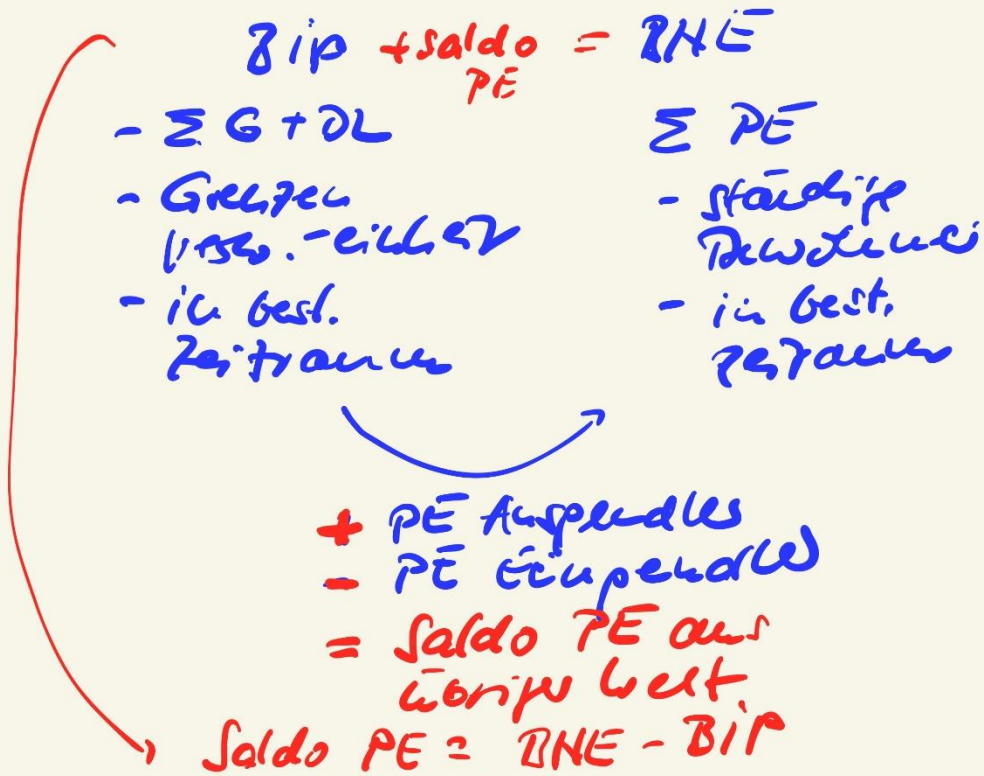 BiP + Saldo = BNE
PE
- Σ G + DL
- Grenzen
- in best.
Zeitraum
Σ PE
- ständige
Bewohner
- in best.
Zeitraum
+ PE Auspendler
- PE Einpendler
= Saldo PE aus
übriger Welt
Saldo PE = BNE - BiP